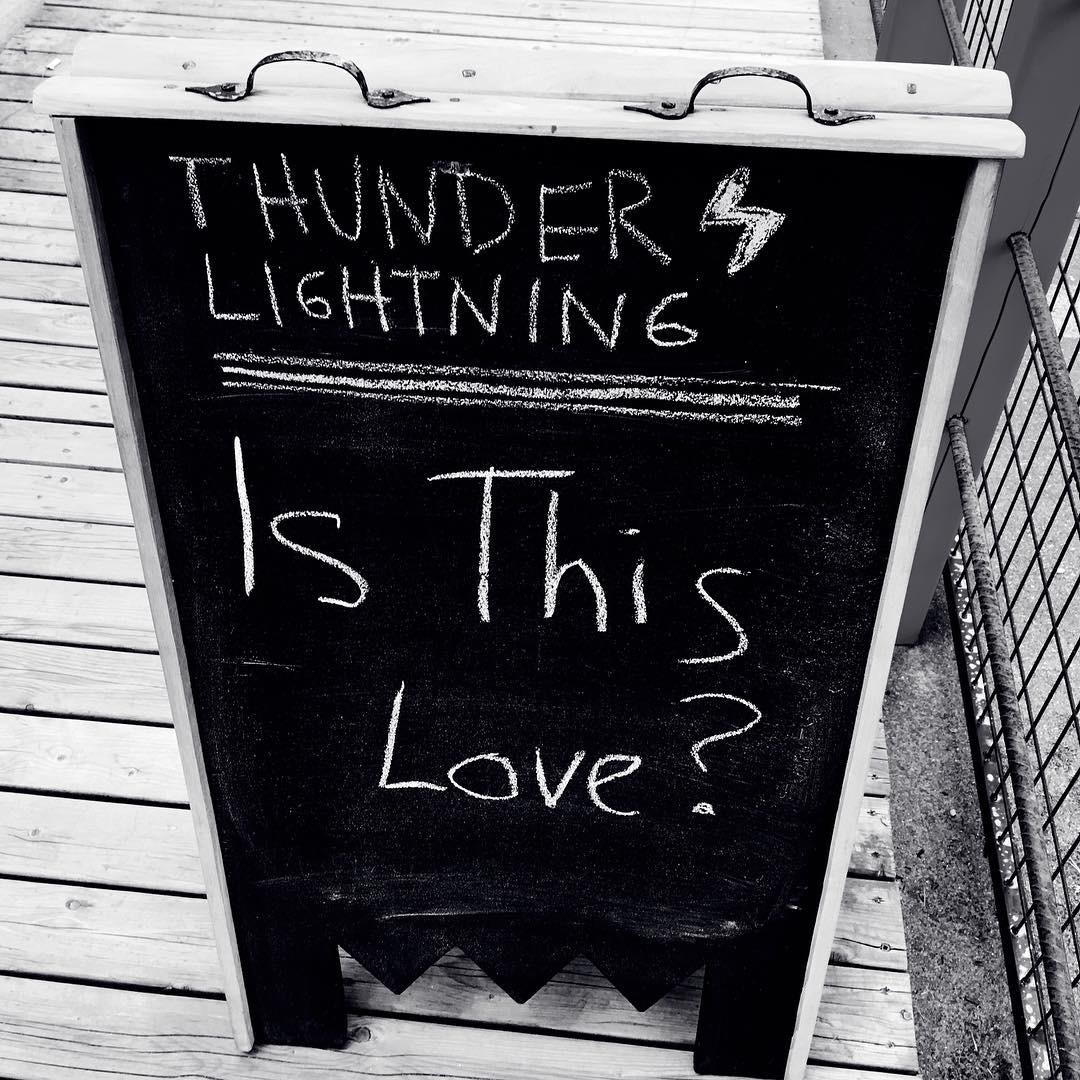 THUNDER
LIGHTNING
Is This
Love?